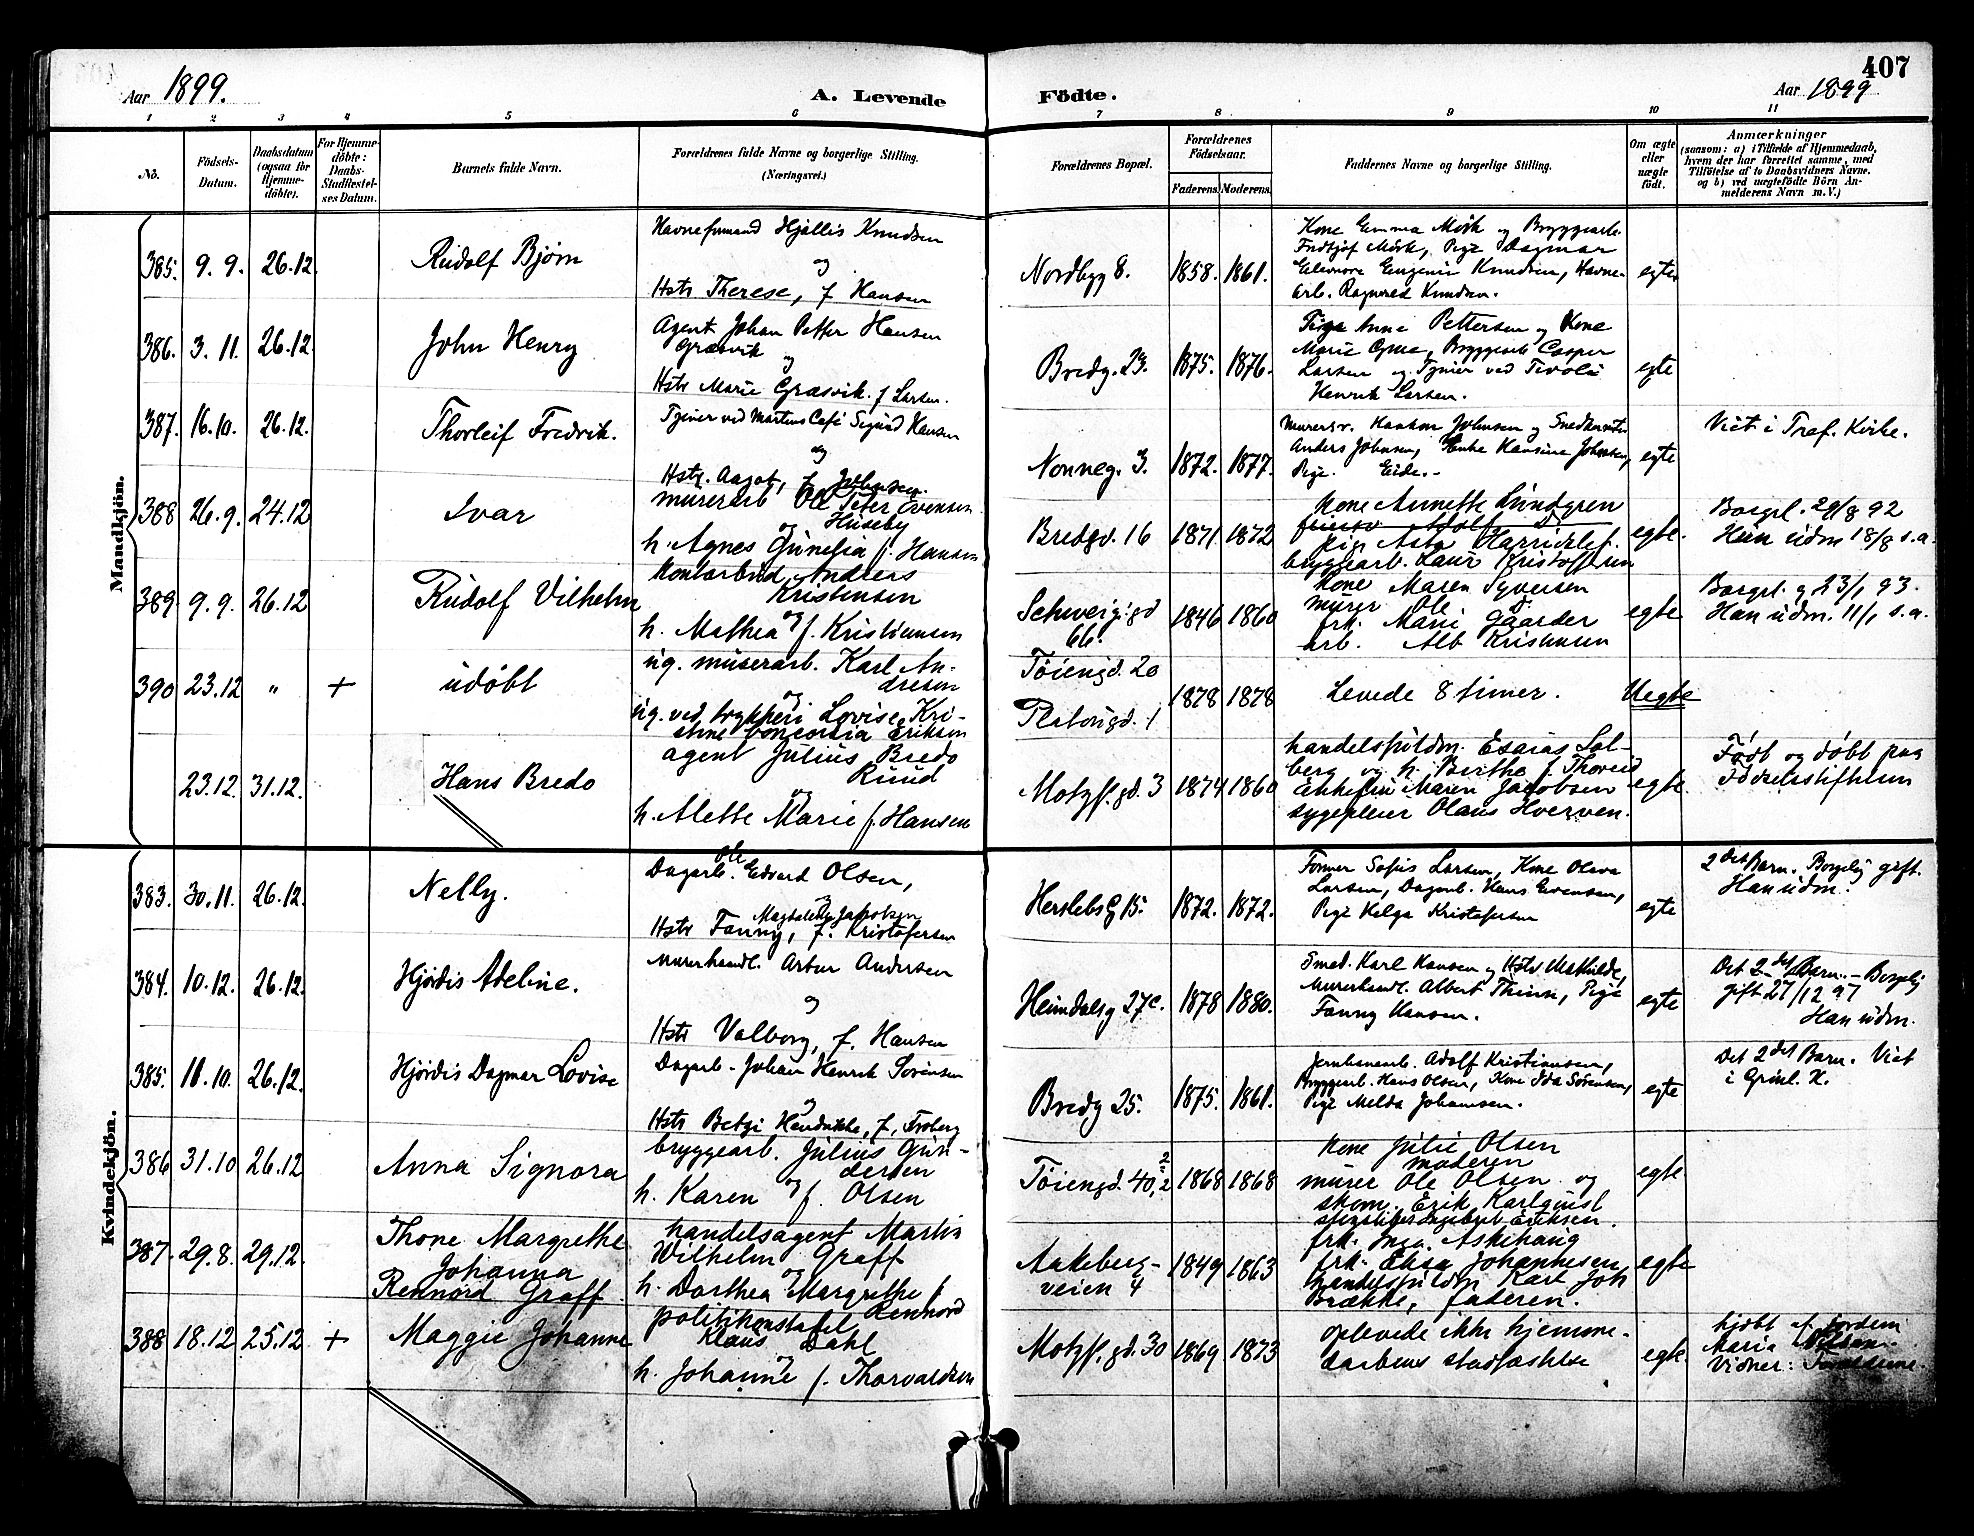 407
Aar 1899.
A. Levende Födte.
Aar 1899
1 2 3 4 5 6 7 8 9 10 11
No.
Födsels-Datum.
Daabsdatum (ogsaa for Hjemmedöbte).
For Hjemmedöbte: Daabs-Stadfæstelses Datum.
Barnets fulde Navn.
Forældrenes fulde Navne og borgerlige Stilling.
(Næringsvei.)
Forældrenes Bopæl.
Forældrenes Födselsaar.
Faderens. Moderens.
Faddernes Navne og borgerlige Stilling.
Om ægte eller uægte födt.
Anmærkninger
(saasom: a) i Tilfælde af Hjemmedaab, hvem der har forrettet samme, med Tilföielse af to Daabsvidners Navne. og b) ved uægtefödte Börn Anmelderens Navn m. V.)
Mandkjön.
385. 9.9. 26.12. Rudolf Bjørn
Havneformand Hjallis Knudsen
og
Hstr Therese, f. Hansen
Nordbyg 8. 1858. 1861.
Kone Emma Mörk og Bryggearb.
Fridtjof Mörk, Pige Dagmar
Eleonore Eugenie Knudsen, Havne-
arb. Ragnvald Knudsen.
egte
386. 3.11. 26.12. John Henry
Agent Johan Petter Hansen
Græsvik
og
Hstr Marie Græsvik f. Larsen.
Bredg. 23. 1875. 1876.
Pige Anne Pettersen og Kone
Marie Bryggearb Casper
Larsen og Tjener ved Tivoli
Henrik Larsen.
egte
387. 16.10. 26.12. Thorleif Fredrik.
Tjener ved Martins Café Sigurd Hansen
og
Hstr. Aagot, f. Johnsen.
Nonneg. 3. 1872. 1877.
Murersv. Haakon Johnsen og Snedkersv.
Anders Johnsen, Enke Hansine Johnsen,
Pige. Eide.-
egte
Viet i Tref. Kirke.
388 26.9. 24.12 Ivar
murerarb Ole Peter Evensen
Huseby
og
h. Agnes Gunelia f. Hansen
Bredgd. 16 1871 1872
Kone Annette Lundgren
Adolf
pige Asta
bryggearb. Laur Kristoffersen
egte.
Borgrl. 29/8 92
Han udm 18/8 s.a.
389 9.9. 26.12 Rudolf Vilhelm
kontorbud Anders
Kristensen
og
h. Mathea f. Kristiansen
Schweigsgd 66. 1846 1860
Kone Maren Syversen
murer Ole d.
frk. Marie Gaarder
arb. Alb Kristensen
egte
Borgrl. g 23/1 93.
Han udm. 11/1 s.a.
390 23.12 " + udöbt
ug. murerarb. Karl An-
dresen
og
ug. ved trykkeri Lovise Kri-
stine Concordia Eriksen
Töiengd. 20
Platougd. 1
1878 1878
Levede 8 timer.
Uegte
23.12. 31.12. Hans Bredo
agent Julius Bredo
Ruud
og
h. Alette Marie f. Hansen
Motzf.gd. 3 1874 1860
handelsfuldm. Esaias Sol-
berg og h. Berthe f. Thoreid
enkefru Maren Jacobsen
sygepleier Olaus Hverven.
egte.
Födt og döbt paa
Födselsstiftelsen
Kvindekjön.
383. 30.11. 26.12. Nelly.
Dagarb. Ole Edvard Olsen,
og
Magdalene Jakobsen
Hstr Fanny, f. Kristofersen
Herslebsg 15. 1872. 1872.
Former Sofus Larsen, Kone Olava
Larsen, Dagarb. Hans Evensen,
Pige Helga Kristofersen
egte
2det Barn. Borgelig gift.
Han udm.
384. 10.12. 26.12. Hjördis Adeline.
Murerhandl. Artur Andersen
og
Hstr Valborg, f. Hansen
Heimdalsg 27c. 1878 1880.
Smed. Karl Hansen og Hstr Mathilde,
Murerhandl. Albert Pige
Fanny Hansen.
egte
Det 2det Barn.- Borgelig
gift 27/12 97
Han udm.
385. 11.10. 26.12. Hjördis Dagmar Lovise
Dagarb. Johan Henrik Sörensen
og
Hstr Betzi Hendrikke, f. Froberg
Bredg 25. 1875. 1861.
Jernbanearb. Adolf Kristiansen,
Bryggearb. Hans Olsen, Kone Ida Sörensen,
Pige Melda Johansen.
egte
Det 2det Barn. Viet
i Grönl. K.
386 31.10 26.12 Anna Signora
bryggearb. Julius Gun-
dersen
og
h. Karen f. Olsen
Töiengd. 40, 2 1868 1868
Kone Julie Olsen
moderen
murer Ole Olsen og
skom. Erik Karlquist
egte.
387. 29.8. 29.12. Thone Margrethe
Johanna
Rennord Graff.
handelsagent Martin
Wilhelm Graff
og
h. Dorthea Margrethe f
Rennord
Aakeberg-
veien 4 1849 1863
frk. Inga Askihaug
frk. Elisa Johannesen
handelsfuldm Karl Joh
Brække, faderen.
egte
388 18.12 25.12 + Maggie Johanne
politikonstabel
Klaus Dahl
h. Johanne f. Thorvaldsen
Motzf.gd. 30 1869. 1873
oplevede ikke hjemme-
daabens stadfæstelse
egte.
hjdöbt af jordem
Maria
Vidner: